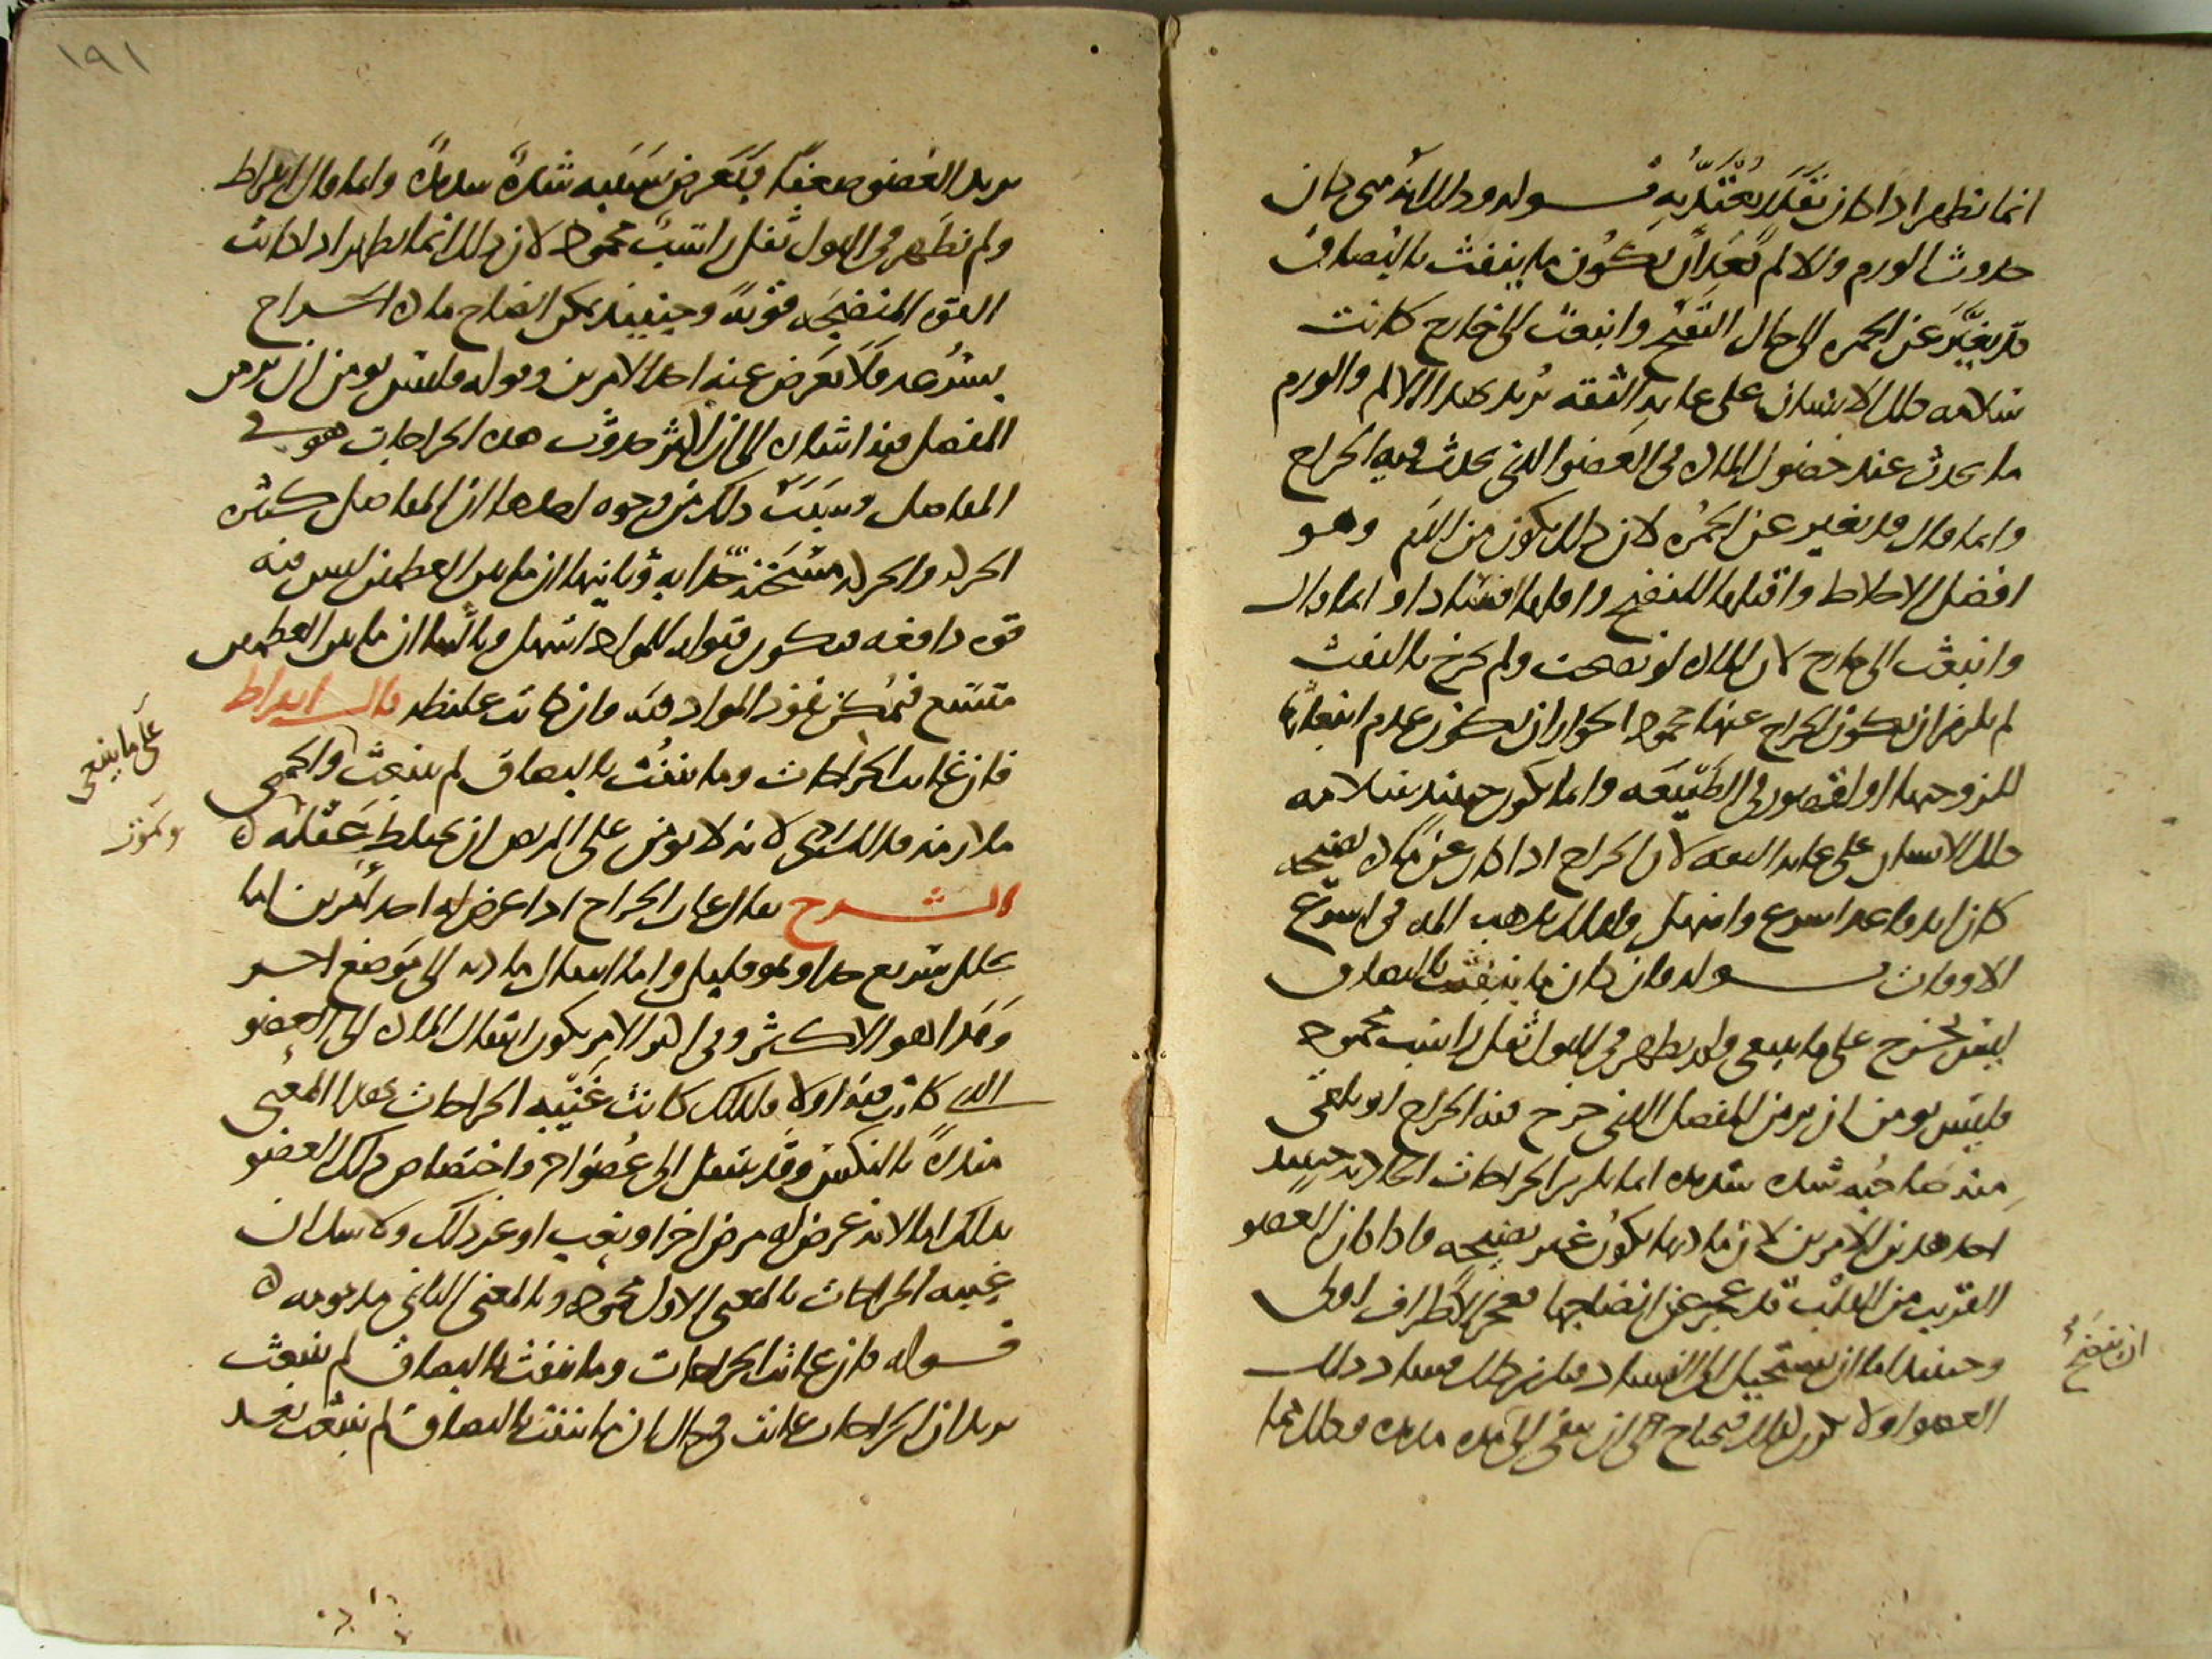 انما تظهر اذا كان تقدر يعتد به قوله وذلك انه متى كان
حدوث الورم والالم بعد ان يكون ما ينفث بالبصاق
قد تغير عن الحمرة الى حال التقيح وانبعث الى خارج كانت
سلامة ذلك الانسان على غاية الثقة يريد بهذا الالم والورم
ما يحدث عند حصول المادة في العضو الذي يحدث فيه الخراج
وانما قال قد تغير عن الحمرة لان ذلك يكون من الدم وهو
افضل الاخلاط واقبلها للنضج واقلها افسادا وانما قال
وانبعث الى خارج لان المادة لو نضجت ولم تخرج بالنفث
لم يلزم ان يكون الخراج عنها محمودا لجواز ان يكون عدم انبعاثها
للزوجتها او لقصور في الطبيعة وانما يكون حينئذ سلامة
ذلك الانسان على غاية الثقة لان الخراج اذا كان عن مادة نضيجة
كان اندفاعها اسرع واسهل ولذلك يذهب الم في اسرع
الاوقات قوله فان كان ما ينفث بالبصاق
ليس يخرج على ما ينبغي ولم يظهر في البول ثفل راسب محمود
فليس يومن ان يزمن المفصل الذي خرج فيه الخراج او يلقى
منه صاحبه شدة شديدة انما يلزم الخراجات الحادثة حينئذ
احد هذين الامرين لان مادتها تكون غير نضيجة واذا كان العضو
القريب من القلب قد عجز عن انضاجها فعجز الاطراف اولى
وحينئذ اما ان يستحيل الى الفساد فيلزم ذلك فساد ذلك
العضو اولا يكون كذلك فيحتاج الى ان يبقى الى مدة مديدة وذلك مما
ان تنضج
١٩١
يريد العضو ضعفا فيعرض بسببه شدة شديدة وانما قال ابقراط
ولم تظهر في البول ثفل راسب محمود لان ذلك انما يظهر اذا كانت
القوة المنضجة قوية وحينئذ يمكن انضاج مادة الخراج
بسرعة فلا يعرض عنه احد الامرين وقوله فليس يومن ان يزمن
المفصل فيه اشارة الى ان اكثر حدوث هذه الخراجات هو في
المفاصل وسبب ذلك من وجوه احدها ان المفاصل كثيرة
الحركة والحركة مسخنة جذابة وثانيها ان ما بين العظمين ليس فيه
قوة دافعة فيكون قبوله للمواد اسهل وثالثها ان ما بين العظمين
متسع فيمكن نفوذ المواد فيه وان كانت غليظة قال ابقراط
فان غابت الخراجات وما ينفث بالبصاق لم ينبعث والحمى
ملازمة فذلك ردي لانه لا يومن على المريض ان يختلط عقله
الشرح يقال غاب الخراج اذا عرض له احد امرين اما
تحلل سريع جدا وهو قليل واما انتقال مادته الى موضع اخر
وهذا هو الاكثر وفي اكثر الامر يكون انتقال المادة الى العضو
الذي كانت فيه اولا ولذلك كانت غيبة الخراجات بهذا المعنى
منذرة بالنكس وقد ينتقل الى عضو اخر واختصاص ذلك العضو
بذلك اما لانه عرض له مرض اخر او تعب او غير ذلك ولا شك ان
غيبة الخراجات بالمعنى الاول محمودة وبالمعنى الثاني مذمومة
قوله فان غابت الخراجات وما ينفث بالبصاق لم ينبعث
يريد ان الخراجات غابت في حال ان ما ينفث بالبصاق لم ينبعث بعد
على ما ينبغي
ويموت